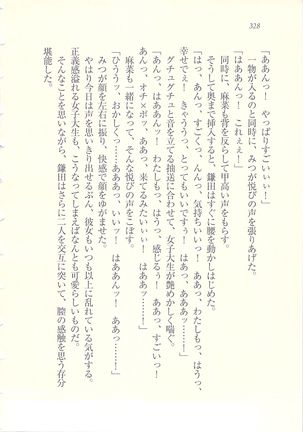 328
「ああんっ！　やっぱりすごいぃぃ！」
一物が入るのと同時に、みつが悦びの声を張りあげた。
「はああんっ！　これぇぇ！」
同時に、麻菜も背を反らして甲高い声をもらす。
そうして奥まで挿入すると、鎌田はすぐに腰を動かしはじめた。
「はっ、あんっ、すごくっ、んんっ、気持ちいいっ！　ああっ、わたしもっ、はうっ、
幸せでぇ！　きゃううっ、とってもいいですぅ！　はああっ……！」
グチュグチュと音を立てる抽送に合わせて、女子大生が艶めかしく喘ぐ。
「あんっ、はああんっ！　わたしもっ、はうっ、感じるぅ！　ああっ、すごいっ！
あんっ、オチ×ポッ、ああっ、来てるみたいぃぃ！　はああッ……！」
麻菜も一緒になって、そんな悦びの声をこぼす。
「ひううっ、おかしくっ……ああああっ、いいッ！　はああんッ！　ああっ……！」
みつが顔を左右に振り、快感で顔をゆがませた。
やはり今日は声を思いきり出せるぶん、彼女もいつも以上に乱れている気がする。
正義感溢れる女子大生も、こうなってしまえばなんとも可愛らしいものだ。
そんなことを思いながら、鎌田はさらに二人を交互に突いて、膣の感触を思う存分
堪能した。